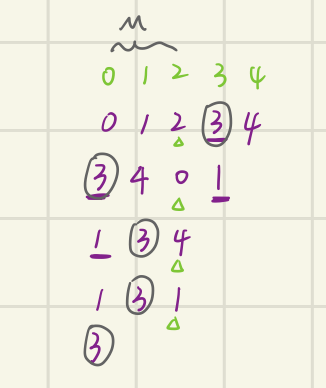 M
0 1 2 3 4
0 1 2 3 4
3 4 0 1
1 3 4
1 3 1
3